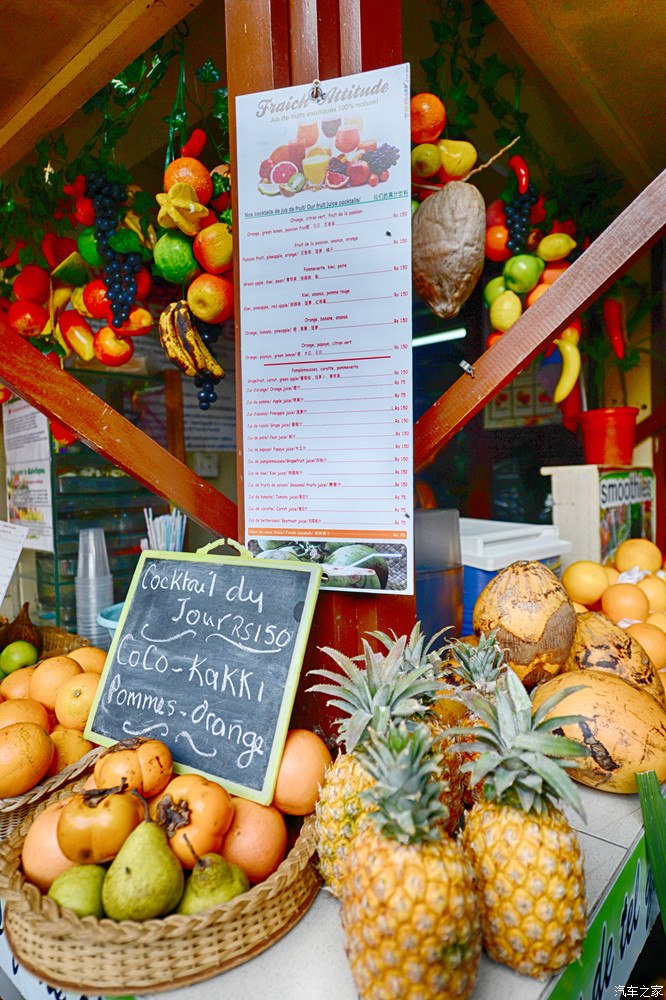 Fraîch Attitude
Jus de fruits exotiques 100% naturel
Nos cocktails de jus de fruit/ Our fresh juice 我们的果汁饮料
Orange, citron vert, fruit de la passion
Orange, green lemon, passion fruit Rs 150
Fruit de la passion, ananas, orange
Passion fruit, pineapple, orange/ Rs 150
Pommeverte, kiwi, poire
Green apple, kiwi, pear/ Rs 150
Kiwi, ananas, pomme rouge
Kiwi, pineapple, red apple/ Rs 150
Orange, banane, ananas
Orange, banana, pineapple/ Rs 150
Orange, papaye, citron vert
Orange, papaya, green lemon/ Rs 150
Pamplemousses, carotte, pommeverte
Grapefruit, carrot, green apple/ Rs 150
Jus d'orange/ Orange juice/ Rs 75
Jus de pomme/ Apple juice/ Rs 75
Jus d'ananas/ Pineapple juice/ Rs 75
Jus de raisin/ Grape juice/ Rs 150
Jus de poire/ Pear juice/ Rs 150
Jus de papaye/ Papaya juice/ Rs 150
Jus de pamplemousses/Grapefruit juice/ Rs 150
Jus de kiwi/ Kiwi juice/ Rs 150
Jus de fruits de saison/ Seasonal fruits juice/ Rs 150
Jus de tomate/ Tomato juice/ Rs 75
Jus de carotte/ Carrot juice/ Rs 75
Jus de betteraves/ Beetroot juice/ Rs 75
Rs 75
smoothies
Cocktail du
Jour RS150
CoCo-KaKKi
Pommes-Orange
de tel
汽车之家